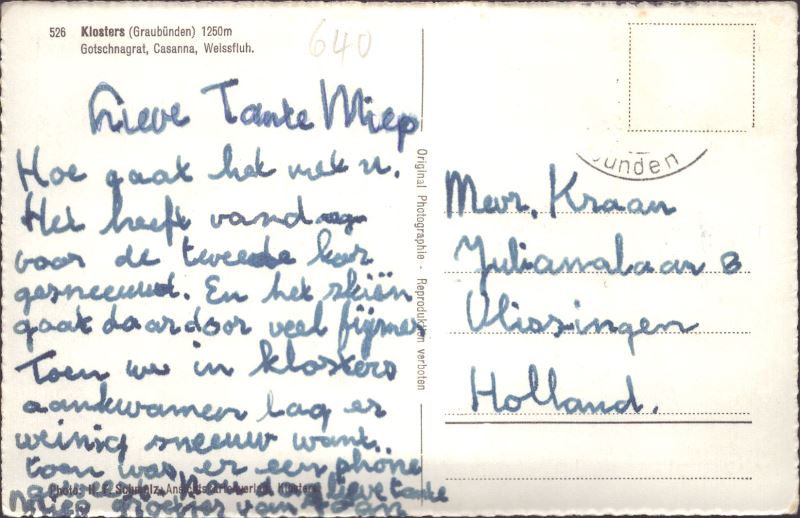 526 Klosters (Graubünden) 1250m
Gotschnagrat, Casanna, Weissfluh.
640
Lieve Tante Miep
Hoe gaat het met u.
Het heeft vandaag
voor de tweede kar
gesneeuwd. En het skiën
gaat daardoor veel fijner
Toen we in klosters
aankwamen lag er
weinig sneeuw want
toen was er een phöne
lieve tante
Miep groeten van
Photo: Ansichtskartenverlag, Klosters
Original Photographie - Reproduktion verboten
ünden
Mevr. Kraan
Julianalaan 8
Vlissingen
Holland.